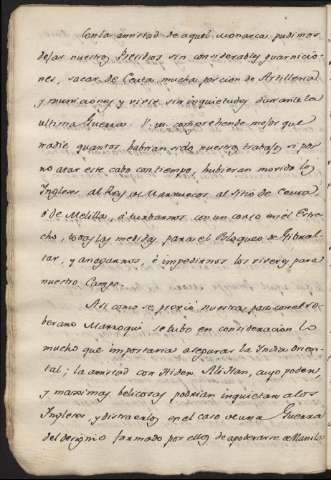 Con la amistad de aquel Monarca pudimos
dejar nuestros Presidios sin considerables guarnicio-
nes, sacar de Ceuta mucha porcion de Artilleria
y municiones y vivir sin inquietudes durante la
ultima Guerra. V. m. comprehende mejor que
nadie quantos habrian sido nuestros trabajos si por
no atar este cabo con tiempo, hubieran movido los
Ingleses al Rey de Marruecos al Sitio de Ceuta
ó de Melilla, ó turbarnos con un corso en el Estre-
cho, todas las medidas para el Bloqueo de Gibral-
tar, y anegarnos, é impedirnos los viveres para
nuestro Campo.
Asi como se previó nuestra paz con el So-
berano Marroqui se tubo en consideración lo
mucho que importaria asegurar la India Orien-
tal; la amistad con Hider Ali Kan, cuyo poder,
y maximas belicosas podrian inquietar a los
Ingleses, y distraerlos en el caso de una Guerra
del designio formado por ellos de apoderarse de Manila